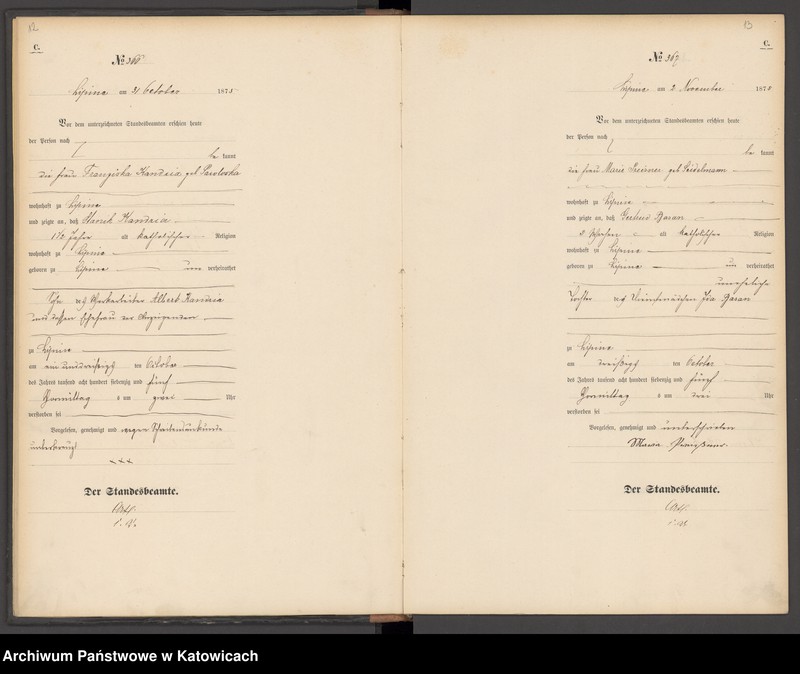 12
C.
№ 366
Lipine am 21 October 1875
Vor dem unterzeichneten Standesbeamten erschien heute
der Person nach
be kannt
die Frau Franziska Kandzia geb Pawloska
wohnhaft zu Lipine
und zeigte an, daß Kandzia
1½ Jahr alt katholischer Religion
wohnhaft zu Lipine
geboren zu Lipine un verheirathet
Sohn des Albert Kandzia
und dessen Ehefrau der Anzeigenden
zu Lipine
am ein und dreißigst ten October
des Jahres tausend acht hundert siebenzig und fünf
Vormittag s um zwei Uhr
verstorben sei
Vorgelesen, genehmigt und wegen Schreibensunkunde
unterkreuzt
xxx
Der Standesbeamte.
13
C.
№ 367
Lipine am 2 November 1875
Vor dem unterzeichneten Standesbeamten erschien heute
der Person nach
be kannt
die Frau Marie geb Seidelmann
wohnhaft zu Lipine
und zeigte an, daß Gertrud Baran
5 Wochen alt katholischer Religion
wohnhaft zu Lipine
geboren zu Lipine un verheirathet
uneheliche
Tochter des Dienstmädchen Ida Baran
zu Lipine
am dreißigst ten October
des Jahres tausend acht hundert siebenzig und fünf
Vormittag s um drei Uhr
verstorben sei
Vorgelesen, genehmigt und unterschrieben
Der Standesbeamte.
Archiwum Państwowe w Katowicach